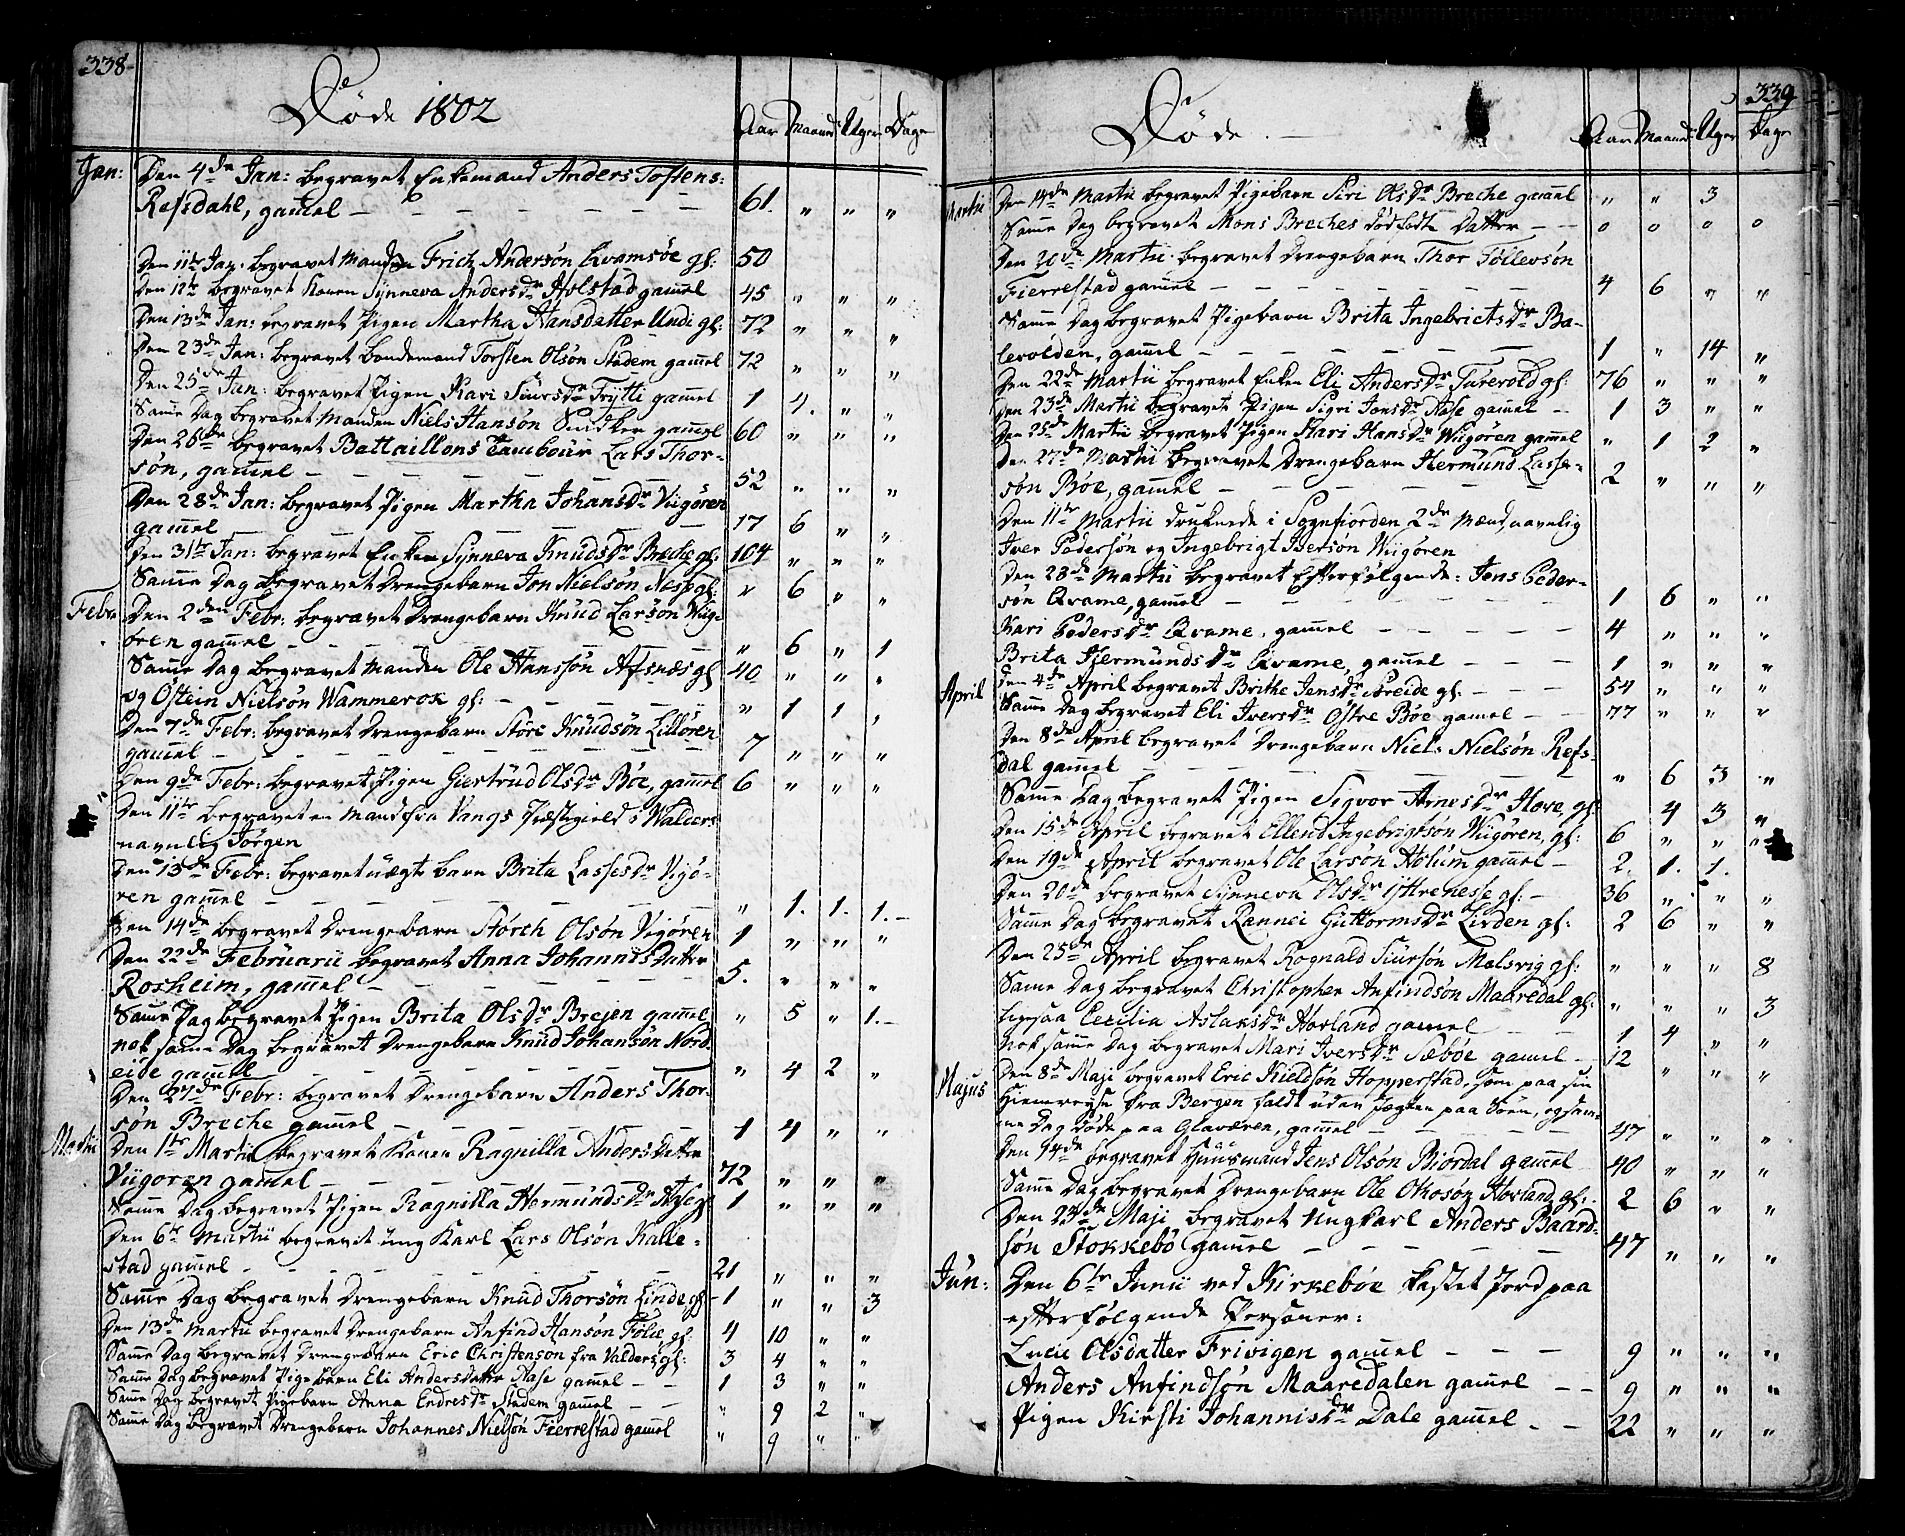 338
De Døde 1802
Aar Maaned Uger Dage
Jan: Den 4de Jan: begravet Enkemand Anders Tostens:
Refsdahl, gamel — 61. " " "
Den 11te Jan. begravet Manden Frich Andersøn Qvamsøe gl: 50
Den 12te begravet Konen Synneva Andersdr Holstad gamel 45 " " "
Den 13de Jan: begravet Pigen Martha Hansdatter Undi gl: 72 " " "
Den 23de Jan: begravet bondemand Torsten Olsøn Stadem gamel 72 " " "
Den 25de Jan: begravet Pigen Kari Siursdr Frytti gamel 1 4. " "
Same Dag begravet Manden Niels Hansøn gamel 60 " " "
Den 26de begravet Battaillons Tambour Lars Thor-
søn, gamel — 52 " " "
Den 28de Jan: begravet Pigen Martha Johansdr Viigøren
gamel — 17 6 " "
Den 31te Jan: begravet Enken Synneva Knudsdr Breche gl: 104 " " "
Same Dag begravet Drengebarn Jon Nielsøn Nesse gl: " 6 " "
Febr Den 2den Febr: begravet Drengebarn Knud Larsøn Viig-
øren gamel — " 6 " 1
Same Dag begravet Manden Ole Hanssøn Afsnæs gl 40 " " "
og Østein Nielsøn Wammerok gl: — " 1 1 "
Den 7de Febr: begravet Drengebarn Støre Knudsøn Lilløren
gamel — 7 " " "
Den 9de Febr: begravet Pigen Giertrud Olsdr Bøe, gamel 6 " " "
Den 11te begravet en Mand fra Vangs Præstegield i Walders
navnlig Jørgen
Den 13de Febr: begravet uægte barn Brita Lassesdr Vigø-
ren gamel — " 1. 1. 1.
Den 14de begravet Drengebarn Størch Olsøn Vigøren 1 " " "
Den 22de Februarii begravet Anna Johannis Datter
Rosheim, gamel — 5. " " "
Same Dag begravet Pigen Brita Olsdr Brejen gamel " 5 " 1.
nok same Dag begravet Drengebarn Knud Johansøn Nord-
eide gamel — " 4 2 "
Den 27de Febr: begravet Drengebarn Anders Thor-
søn Breche gamel — 1 4 " "
Martii Den 1te Martii begravet Konen Ragnilla Anders Datter
Viigøren gamel — 72 " " "
Same Dag begravet Pigen Ragnilla Hermundsdr gl 1 " " "
Den 6te Martii begravet ung Karl Lars Olsøn Kalle-
stad gamel — 21 " " "
Same Dag begravet Drengebarn Knud Thorsøn Linde gl — 1 " " 3
Den 13de Martii begravet Drengebarn Anfind Hansøn Følie gl: 4 10 " "
Same Dag begravet Drengebarn Eric Christenson fra Valders gl: 3 4 " "
Same Dag begravet Pigebarn Eli Andersdatter Aase gamel — 1 3 " "
Same Dag begravet Pigebarn Anna Endresdr Stadem gamel — " 9 2 "
Same Dag begravet Drengebarn Johannes Nielsøn Fierrestad gamel " 9 " "
339
De Døde. —
Aar Maaned Uger Dage
Martii Den 14de Martii begravet Pigebarn Siri Olsdr Breche gamel " " 3
Same Dag begravet Mons Breches dødfødte Datter — o o o o
Den 20de Martii begravet Drengebarn Thor Tollevsøn
Fierrestad gamel — 4 6 " "
Same Dag begravet Pigebarn Brita Ingebrictsdr Ba-
levolden, gamel — 1 " 14 "
Den 22de Martii begravet Enken Eli Andersdr Turevold gl: 76 " " "
Den 23de Martii begravet Pigen Sigri Jonsdr Aase gamel — 1 3 " "
Den 25de Martii begravet Pigen Kari Hansdr Wiigøren gamel " 1 2 "
Den 27de Martii begravet Drengebarn Hermund Lasse-
søn Bøe, gamel — 2 " " "
Den 11te Martii druknede i Sognefiorden 2de Mænd, navnlig
Iver Pedersøn og Ingebrigt Ibersøn Wiigøren
Den 28de Martii begravet Efterfølgende: Jens Peder-
søn Qvame, gamel — 1 6 " "
Kari Pedersdr Qvame, gamel — 4 " " "
Brita Hermundsdr Qvame, gamel — 1 " " "
April Den 4de April begravet Brithe Jensdr Breide gl: — 54 " " "
Same Dag begravet Eli Iversdr Østre Bøe gamel — 77 " " "
Den 8de April begravet Drengebarn Niels Nielsøn Refs-
dal gamel — " 6 3 "
Same Dag begravet Pigen Sigvor Arnesdr Hove, gl: 4 3 "
Den 15de April begravet Ellend Ingebrigtsøn Wiigøren, gl: 6 " " "
Den 19de April begravet Ole Larsøn Holum gamel — 2. 1. 1.
Den 20de begravet Synneva Olsdr Yttrenesse gl: — 36 " " "
Same Dag begravet Rannei Guttormsdr Lirden gl: 2 6 " "
Den 25de April begravet Rognald Siursøn Malsvig gl: " " " 8
Same Dag begravet Christopher Anfindsøn Maaredal gl: " " " 3
Ligesaa Cecilia Aslaksdr Hovland gamel — 1 4 " "
Nok samme Dag begravet Mari Iversdr Sæbøe gamel — 12 " " "
Majus Den 8de Maji begravet Eric Kieldsøn Hopperstad, som paa sin
Hiemreyse fra Bergen faldt uden Jægten paa Søen, og sam-
me Dag døde paa Glaværen, gamel — 47 " " "
Den 14de begravet Huusmand Jens Olsøn Biordal gamel 40 " " "
Same Dag begravet Drengebarn Ole Okosøn Hovland gl: 2 6 " "
Den 23de Maji begravet Ungkarl Anders Baard-
søn Stokkebø gamel — 47 " " "
Jun: Den 6te Junii ved Kirkebøe kastet Jord paa
efterfølgende Personer:
Lucie Olsdatter Frivigen gamel — 9 " " "
Anders Anfindsøn Maaredalen gamel — 9 " " "
Pigen Kirsti Johannisdr Dale gamel — 22 " " "